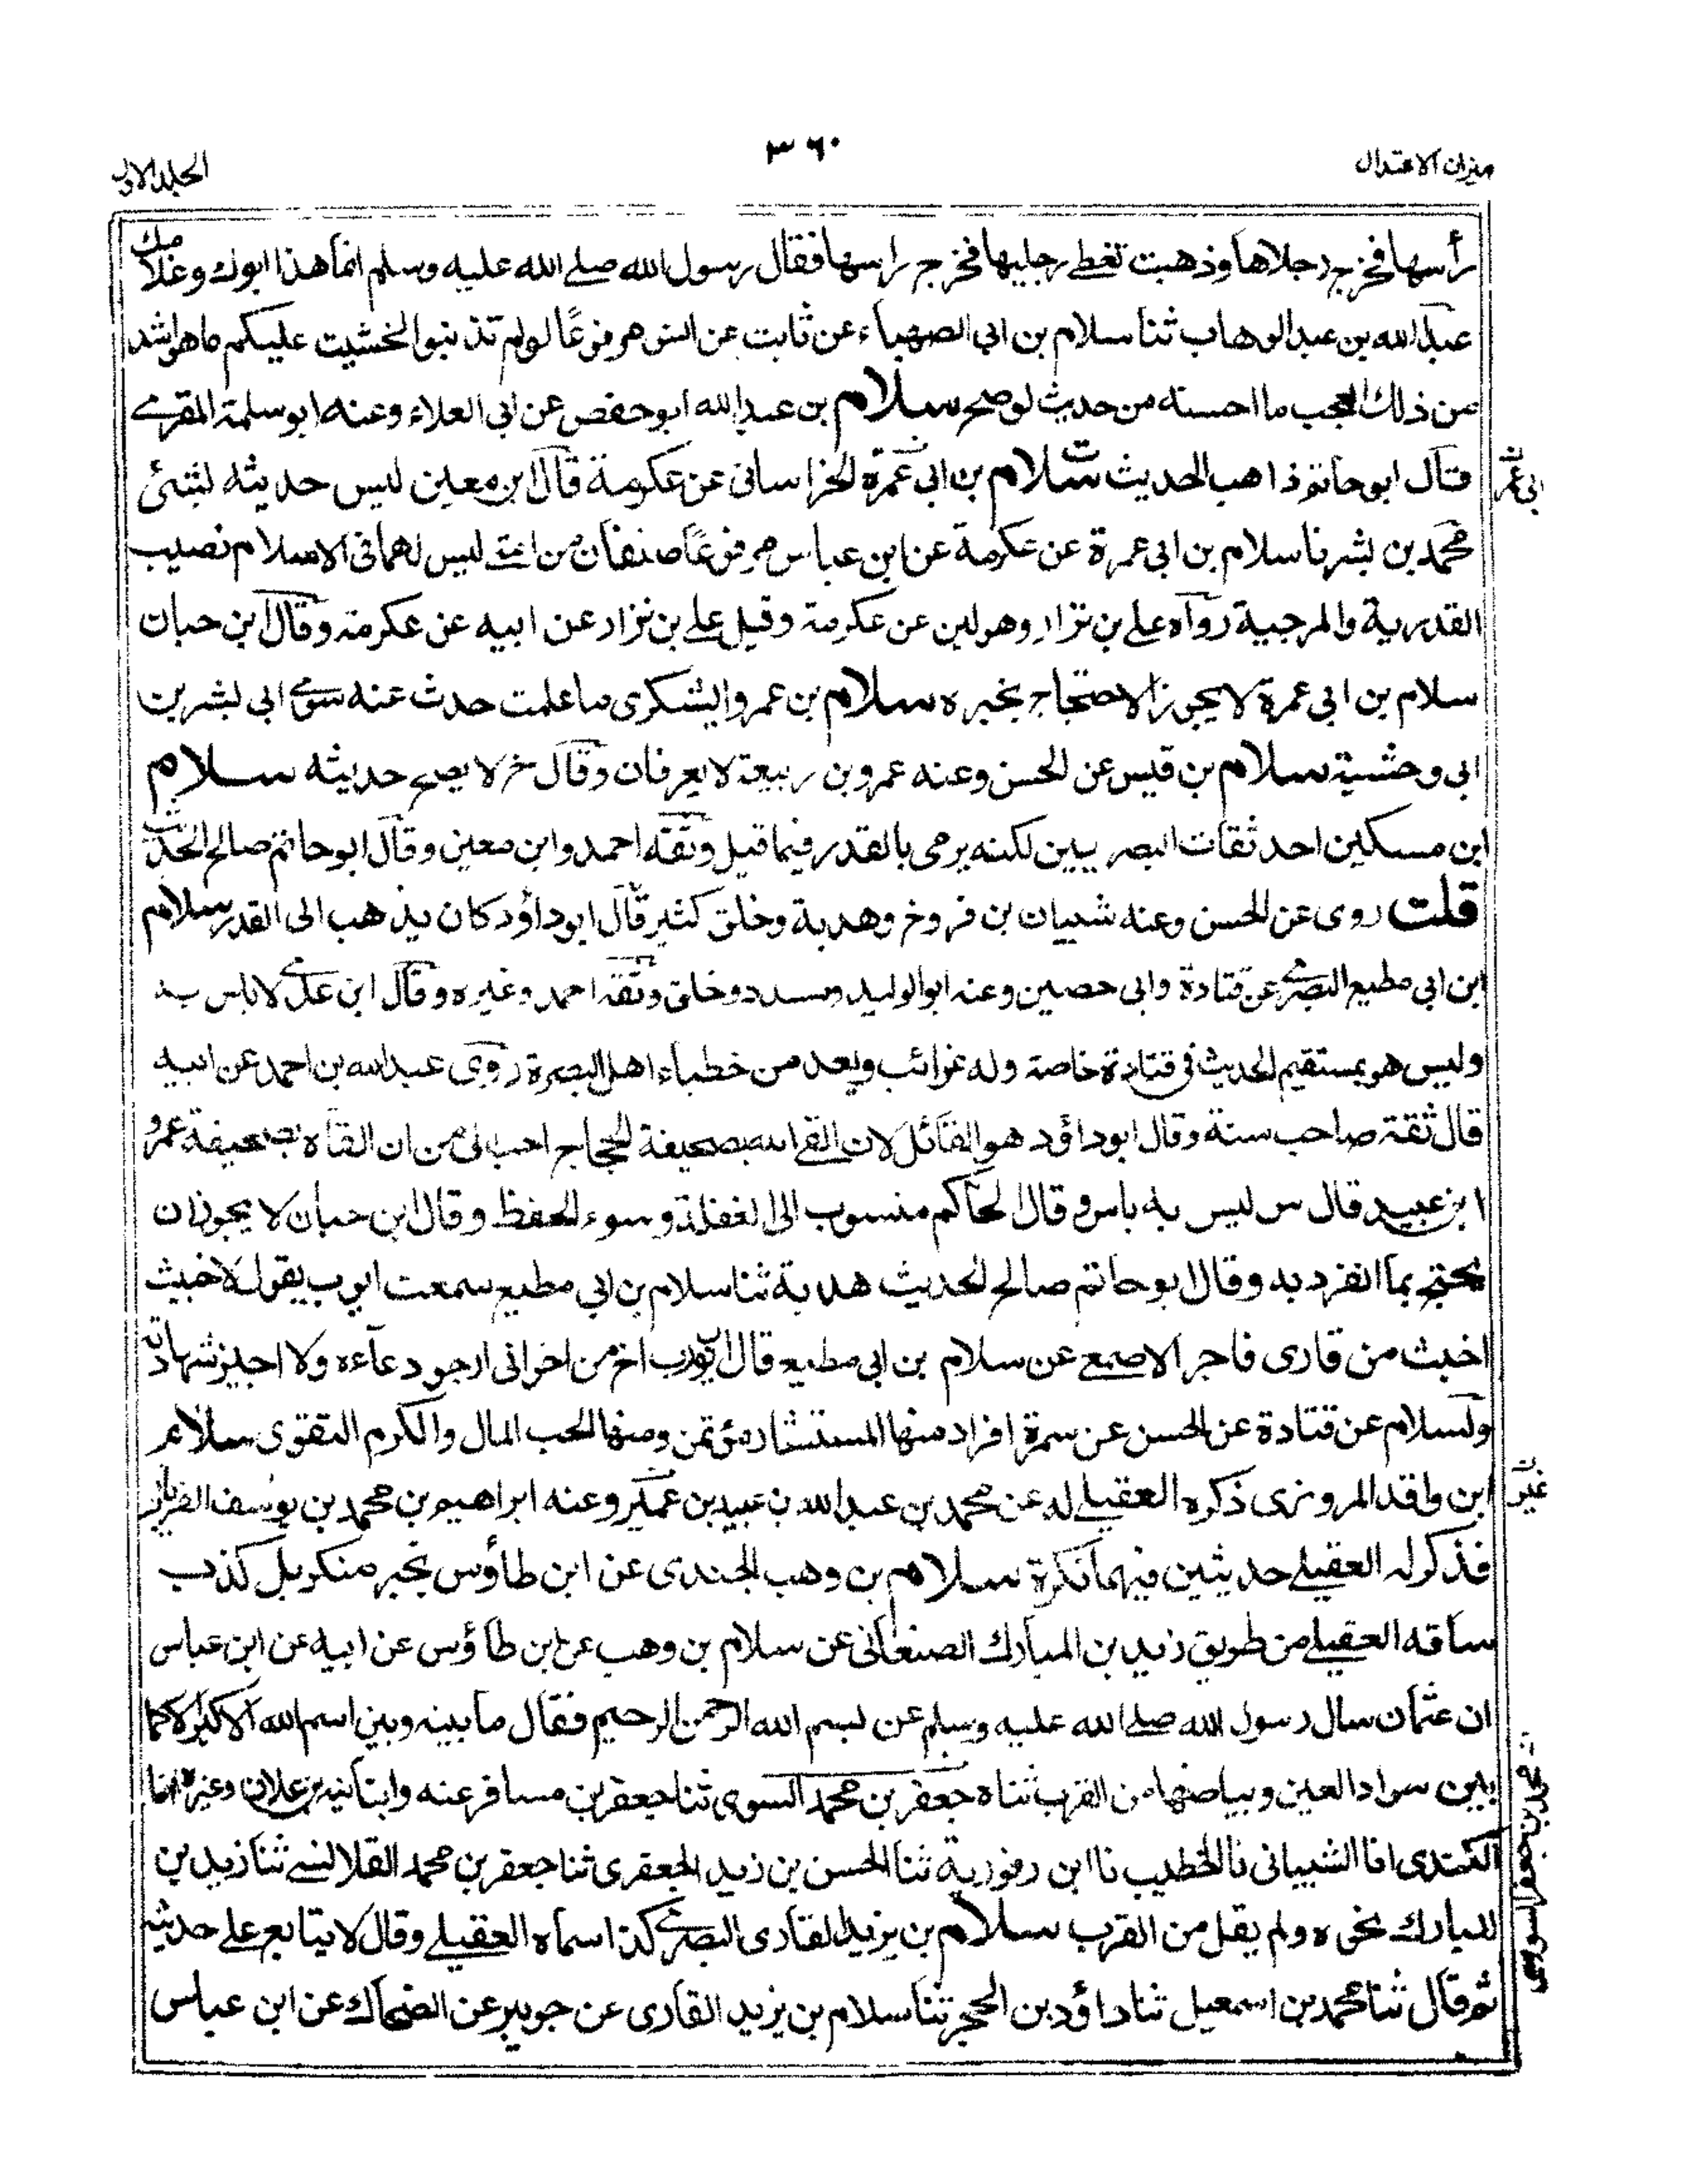 ميزان الاعتدال
٣٦٠
الجلد الاول
رأسها فخرج رجلاها وذهبت تغطے رجليها فخرج راسها فقال رسول الله صلے الله عليه وسلم انما هذا ابوك وغلامك
عبدالله بن عبدالوهاب ثنا سلام بن ابي الصهباء عن ثابت عن انس مرفوعًا لو لم تذنبوا لخشيت عليكم ما هو اشد
من ذلك العجب ما احسنه من حديث لو صح سلام بن عبدالله ابو حفص عن ابي العلاء وعنه ابو سلمة المقرے
قال ابو حاتم ذاهب الحديث ت سلام بن ابي عمرة الخراساني عن عكرمة قال ابن معين ليس حديثه لشئ
محمد بن بشر نا سلام بن ابي عمرة عن عكرمة عن ابن عباس مرفوعًا صنفان من امتے ليس لهما في الاسلام نصيب
القدرية والمرجية رواه علے بن نزار وهو لين عن عكرمة وقيل علے بن نزار عن ابيه عن عكرمة وقال ابن حبان
سلام بن ابي عمرة لا يجوز الاحتجاج بخبره سلام بن عمرو اليشكري ما علمت حدث عنه سوى ابي بشر بن
ابي وحشية سلام بن قيس عن الحسن وعنه عمرو بن ربيعة لا يعرفان وقال خ لا يصح حديثه سلام
ابن مسكين احد ثقات البصريين لكنه يرمي بالقدر فيما قيل وثقه احمد وابن معين وقال ابو حاتم صالح الحديث
قلت روى عن الحسن وعنه شيبان بن فروخ وهدبة وخلق كثير قال ابو داؤد كان يذهب الى القدر سلام
ابن ابي مطيع البصرے عن قتادة وابي حصين وعنه ابو الوليد ومسدد وخلق وثقه احمد وغيره وقال ابن عدے لا باس به
وليس هو بمستقيم الحديث في قتادة خاصة وله غرائب ويعد من خطباء اهل البصرة روى عبدالله بن احمد عن ابيه
قال ثقة صاحب سنة وقال ابو داؤد هو القائل لان القے الله بصحيفة الحجاج احب الى من ان القاه بصحيفة عمرو
ابن عبيد قال س ليس به باس وقال الحاكم منسوب الى الغفلة وسوء الحفظ وقال ابن حبان لا يجوز ان
يحتج بما انفرد به وقال ابو حاتم صالح الحديث هدبة ثنا سلام بن ابي مطيع سمعت ايوب يقول لا خبيث
اخبث من قارى فاجر الاصمعے عن سلام بن ابي مطيع قال ايوب اخ من اخواني ارجو دعاءه ولا اجيز شهادته
ولسلام عن قتادة عن الحسن عن سمرة افراد منها المستشار مؤتمن ومنها الحسب المال والكرم التقوى سلام
ابن واقد المروزى ذكره العقيلے له عن محمد بن عبدالله بن عبيد بن عمير وعنه ابراهيم بن محمد بن يوسف الفريابي
فذكر له العقيلے حديثين فيهما نكرة سلام بن وهب الجندى عن ابن طاؤس بخبر منكر بل كذب
ساقه العقيلے من طريق زيد بن المبارك الصنعاني عن سلام بن وهب عن ابن طاؤس عن ابيه عن ابن عباس
ان عثمان سال رسول الله صلے الله عليه وسلم عن بسم الله الرحمن الرحيم فقال ما بينه وبين اسم الله الاكبر الا كما
بين سواد العين وبياضها من القرب ثناه جعفر بن محمد السوسى ثنا جعفر بن مسافر عنه وانبانيه بن علان وغيره انا
الكندى انا الشيباني نا الخطيب نا ابن رزقويه ثنا الحسن بن زيد الجعفرى ثنا جعفر بن محمد القلانسے ثنا زيد بن
المبارك بنحوه ولم يقل من القرب سلام بن يزيد القارى البصرے كذا سماه العقيلے وقال لا يتابع على حديثه
ثم قال ثنا محمد بن اسمعيل ثنا داؤد بن المحبر ثنا سلام بن يزيد القارى عن جويبر عن الضحاك عن ابن عباس